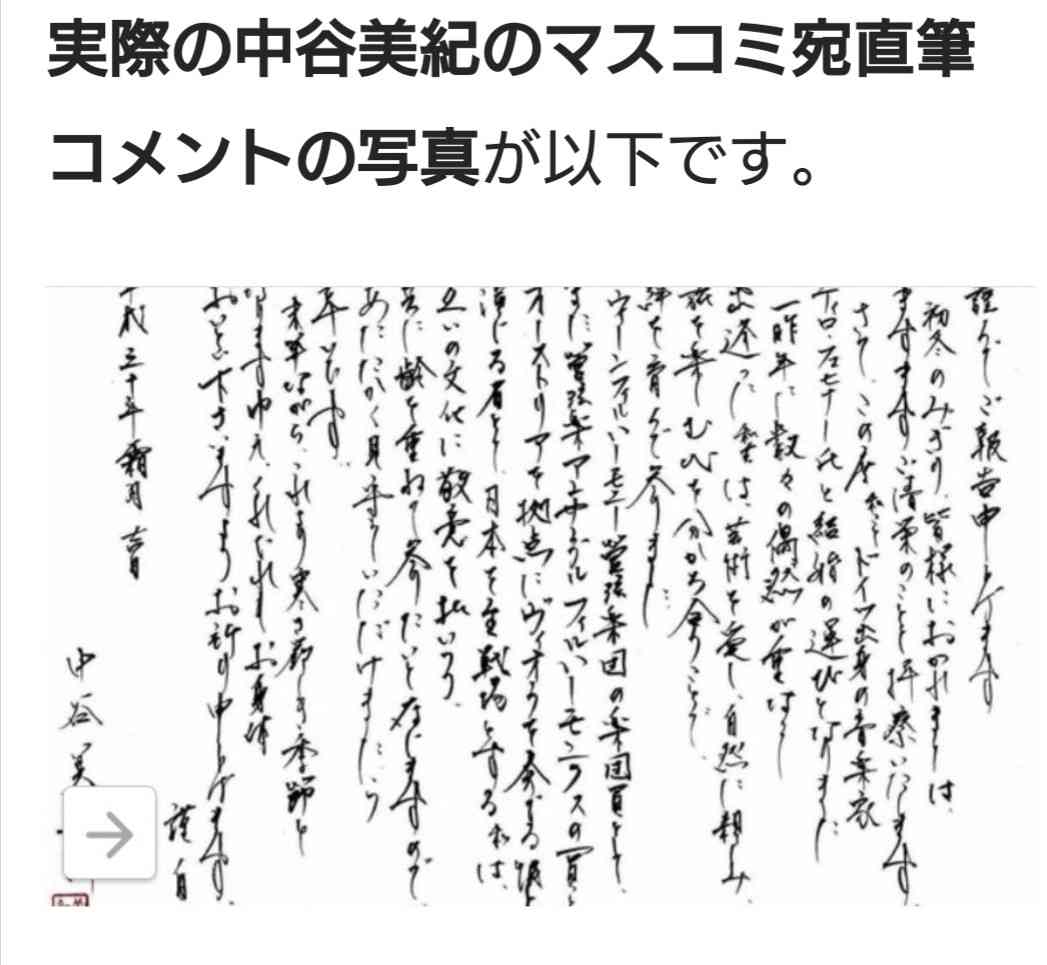 実際の中谷美紀のマスコミ宛直筆
コメントの写真が以下です。
謹んでご報告申し上げます
初冬のみぎり、皆様におかれましては、
ますますご清栄のことと拝察いたします
さて、この度 私ことドイツ出身の音楽家
ティロ・フェヒナー氏と結婚の運びとなりました
一昨年に数々の偶然が重なり
出逢った私達は、芸術を愛し、自然に親しみ
旅を楽しむ心を分かち合うことで、
絆を育んで参りました。
ウィーンフィルハーモニー管弦楽団の楽団員として、
また管弦楽アンサンブル フィルハーモニクスの一員と
オーストリアを拠点にヴィオラを奏でる彼と
演じる者として、日本を主戦場とする私は、
互いの文化に敬意を払いつつ、
共に齢を重ねて参りたいと存じますので
あたたかく見守っていただけましたら
幸いです。
末筆ながら、これより寒さ厳しき季節と
なりますゆえ、くれぐれもお身体
おいとい下さいますようお祈り申し上げます。
謹白
平成三十年霜月吉日
中谷美